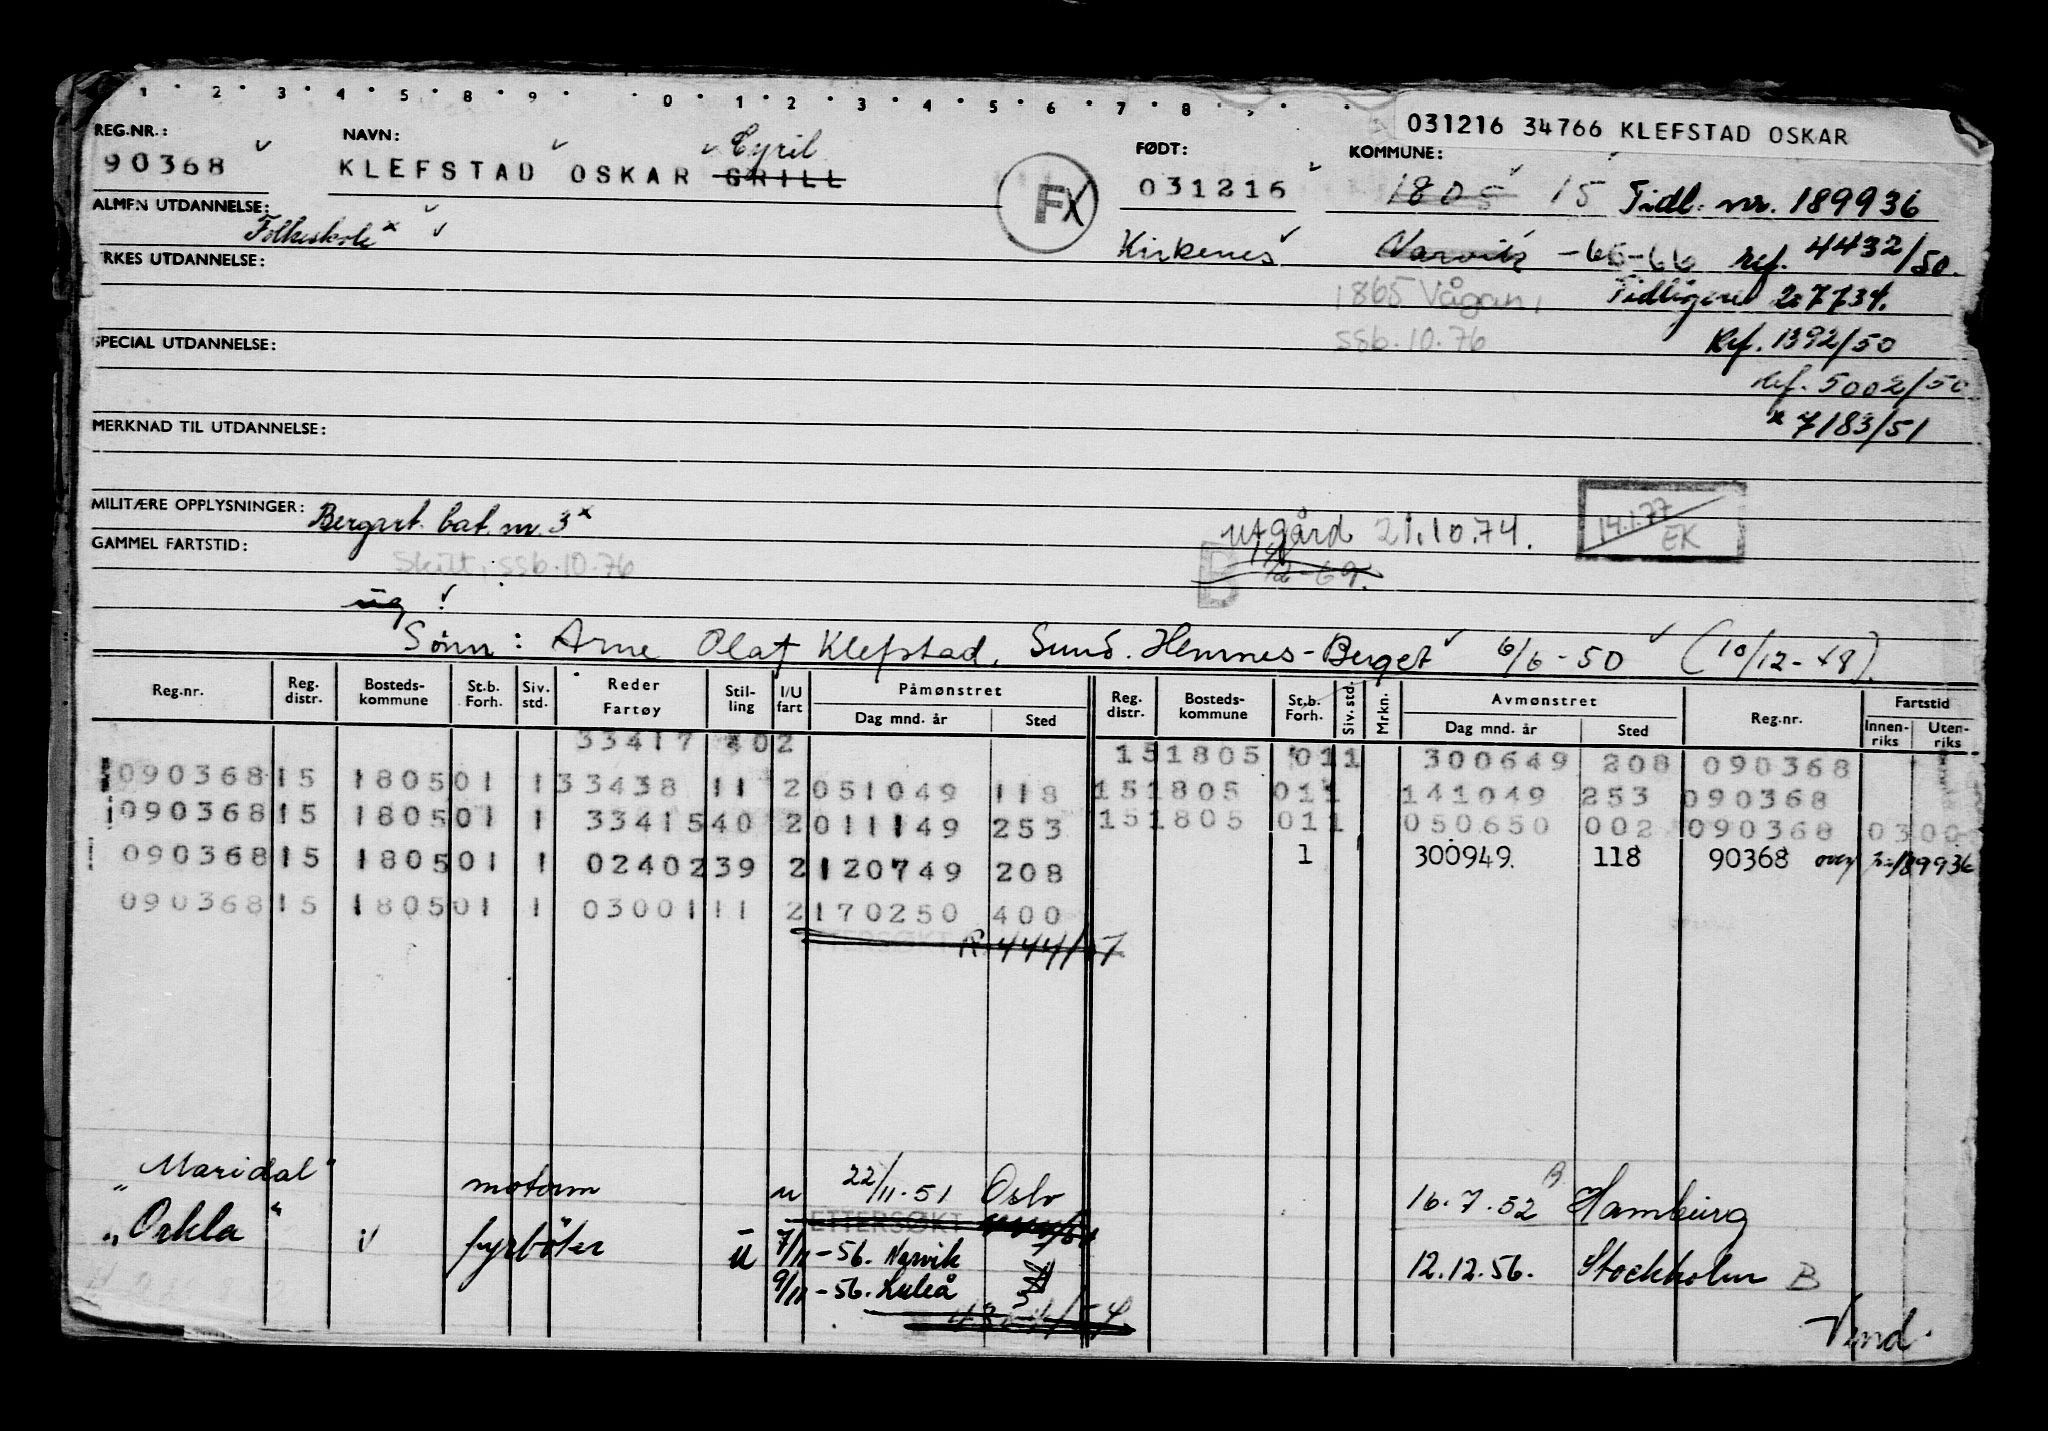 1 2 3 4 5 8 9 0 1 2 3 4 5 6 7 8
031216 34766 KLEFSTAD OSKAR
REG.NR.: NAVN: FØDT: KOMMUNE:
90368 KLEFSTAD OSKAR GRILL Cyril 031216 1805 15 Tidl. nr. 189936
FX
ALMEN UTDANNELSE: Folkeskole x Kirkenes Narvik -65-66 Ref. 4432/50.
YRKES UTDANNELSE: 1865 Vågan, Tidligere 27734.
ssb.10.76 Ref. 1392/50
SPECIAL UTDANNELSE:
Ref. 5002/50
x 7183/51
MERKNAD TIL UTDANNELSE:
MILITÆRE OPPLYSNINGER: Bergart. bat. nr. 3 x
utgård 21.10.74. 14.1.77 EK
GAMMEL FARTSTID:
Skilt, ssb.10.76
B
ug
Sønn: Arne Olaf Klefstad, Sund. Hemnes-Berget 6/6-50 (10/12-48).
Reg.nr. Reg. distr. Bosteds-kommune St.b. Forh. Siv. std. Reder Fartøy Stil-ling I/U fart Påmønstret Dag mnd. år Sted Reg. distr. Bosteds-kommune St.b. Forh. Siv. std. Mrkn. Avmønstret Dag mnd. år Sted Reg.nr. Fartstid Innen-riks Uten-riks
33417 402 151805 011 300649 208 090368
090368 15 1805 01 1 33438 11 2 051049 118 151805 011 141049 253 090368
090368 15 1805 01 1 33415 40 2 011149 253 151805 011 050650 002 090368 0300
090368 15 1805 01 1 02402 39 2 120749 208 1 300949. 118 90368 189936
090368 15 1805 01 1 03001 11 2 170250 400
ETTERSØKT R. 444/57
"Maridal" motorm u 22/11.51 Oslo 16.7.52 B Hamburg
ETTERSØKT
"Orkla" fyrböter U 7/11-56. Narvik 12.12.56. Stockholm B
9/11-56. Luleå
Vend.